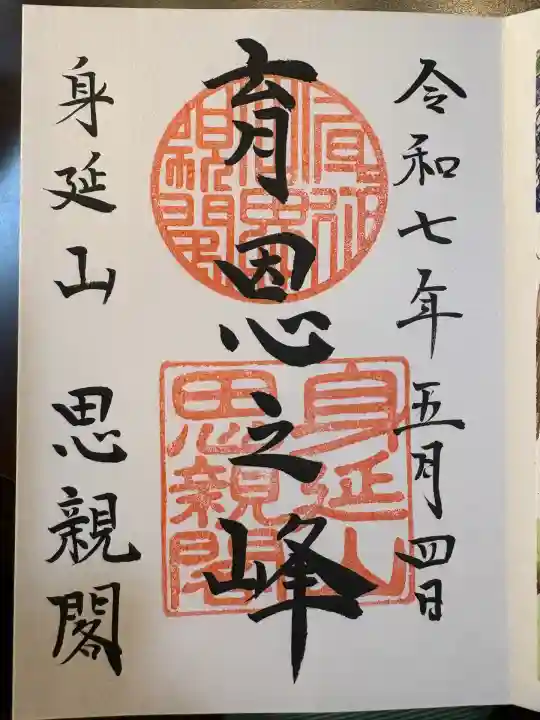 令和七年五月四日
育恩之峰
身延山
思親閣
身延山 思親閣